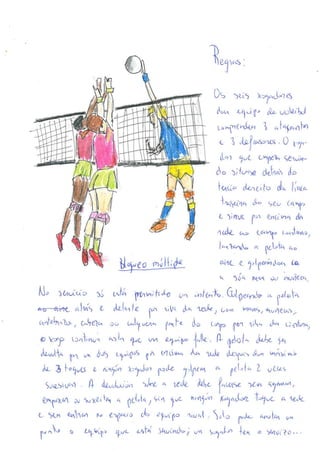 Regras:
Os seis xogadores
dun equipo de voleibol
comprenden 3 atacantes
e 3 defensores. O xoga-
dor que empeza servin-
do sitúase detrás do
tercio dereito da línea
traseira do seu campo
e sirve por encima da
rede ao campo contrario,
lanzando a pelota ao
aire e golpeándoa ca
a súa man ou muñeca.
Bloqueo múltiple
No servicio só está permitido un intento. Golpeando a pelota
atrás e delante por riba da rede, con mans, muñecas,
antebrazos, cabeza ou calquera parte do corpo por riba da cintura,
o xogo continua asta que un equipo falle. A pelota debe ser
devolta por un dos equipos por encima da rede despois dun máximo
de 3 toques e ningún xogador pode golpear a pelota 2 veces
sucesivas. A devolución sobre a rede debe facerse sen agarrar,
empuxar ou suxeitar a pelota, sin que ningún xogador toque a rede
e sen entrar no espacio do equipo rival. Sito pode anotar un
punto o equipo que está servindo; un xogador ten o servizo...